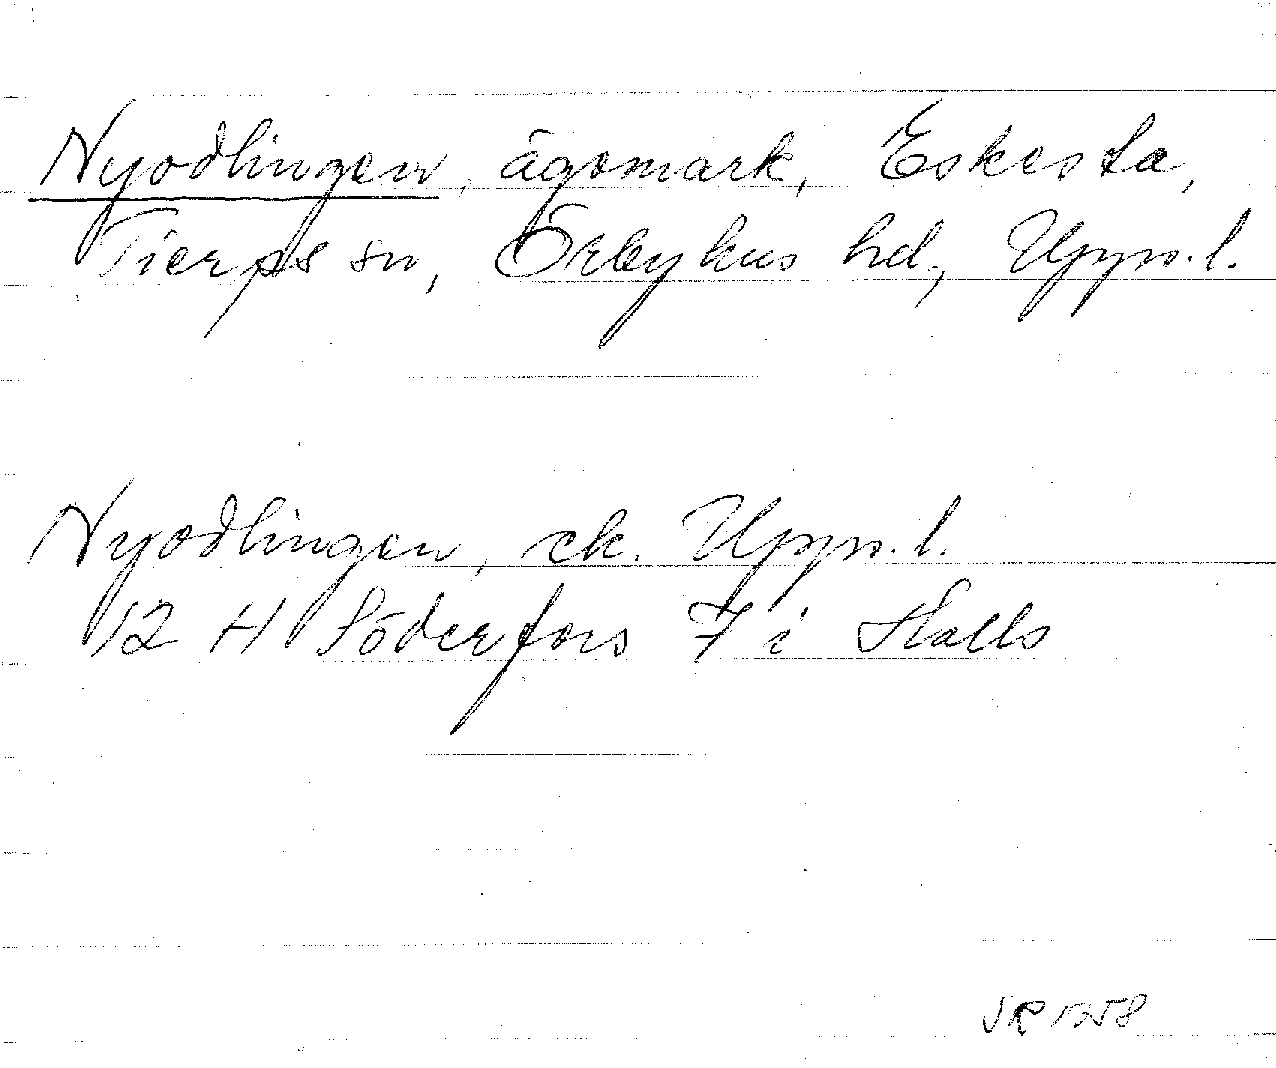 Nyodlingen, ägomark, Eskesta,
Tierps sn, Örbyhus hd, Upps.l.
Nyodlingen, ek. Upps.l.
12 H Söderfors 7 i Halls